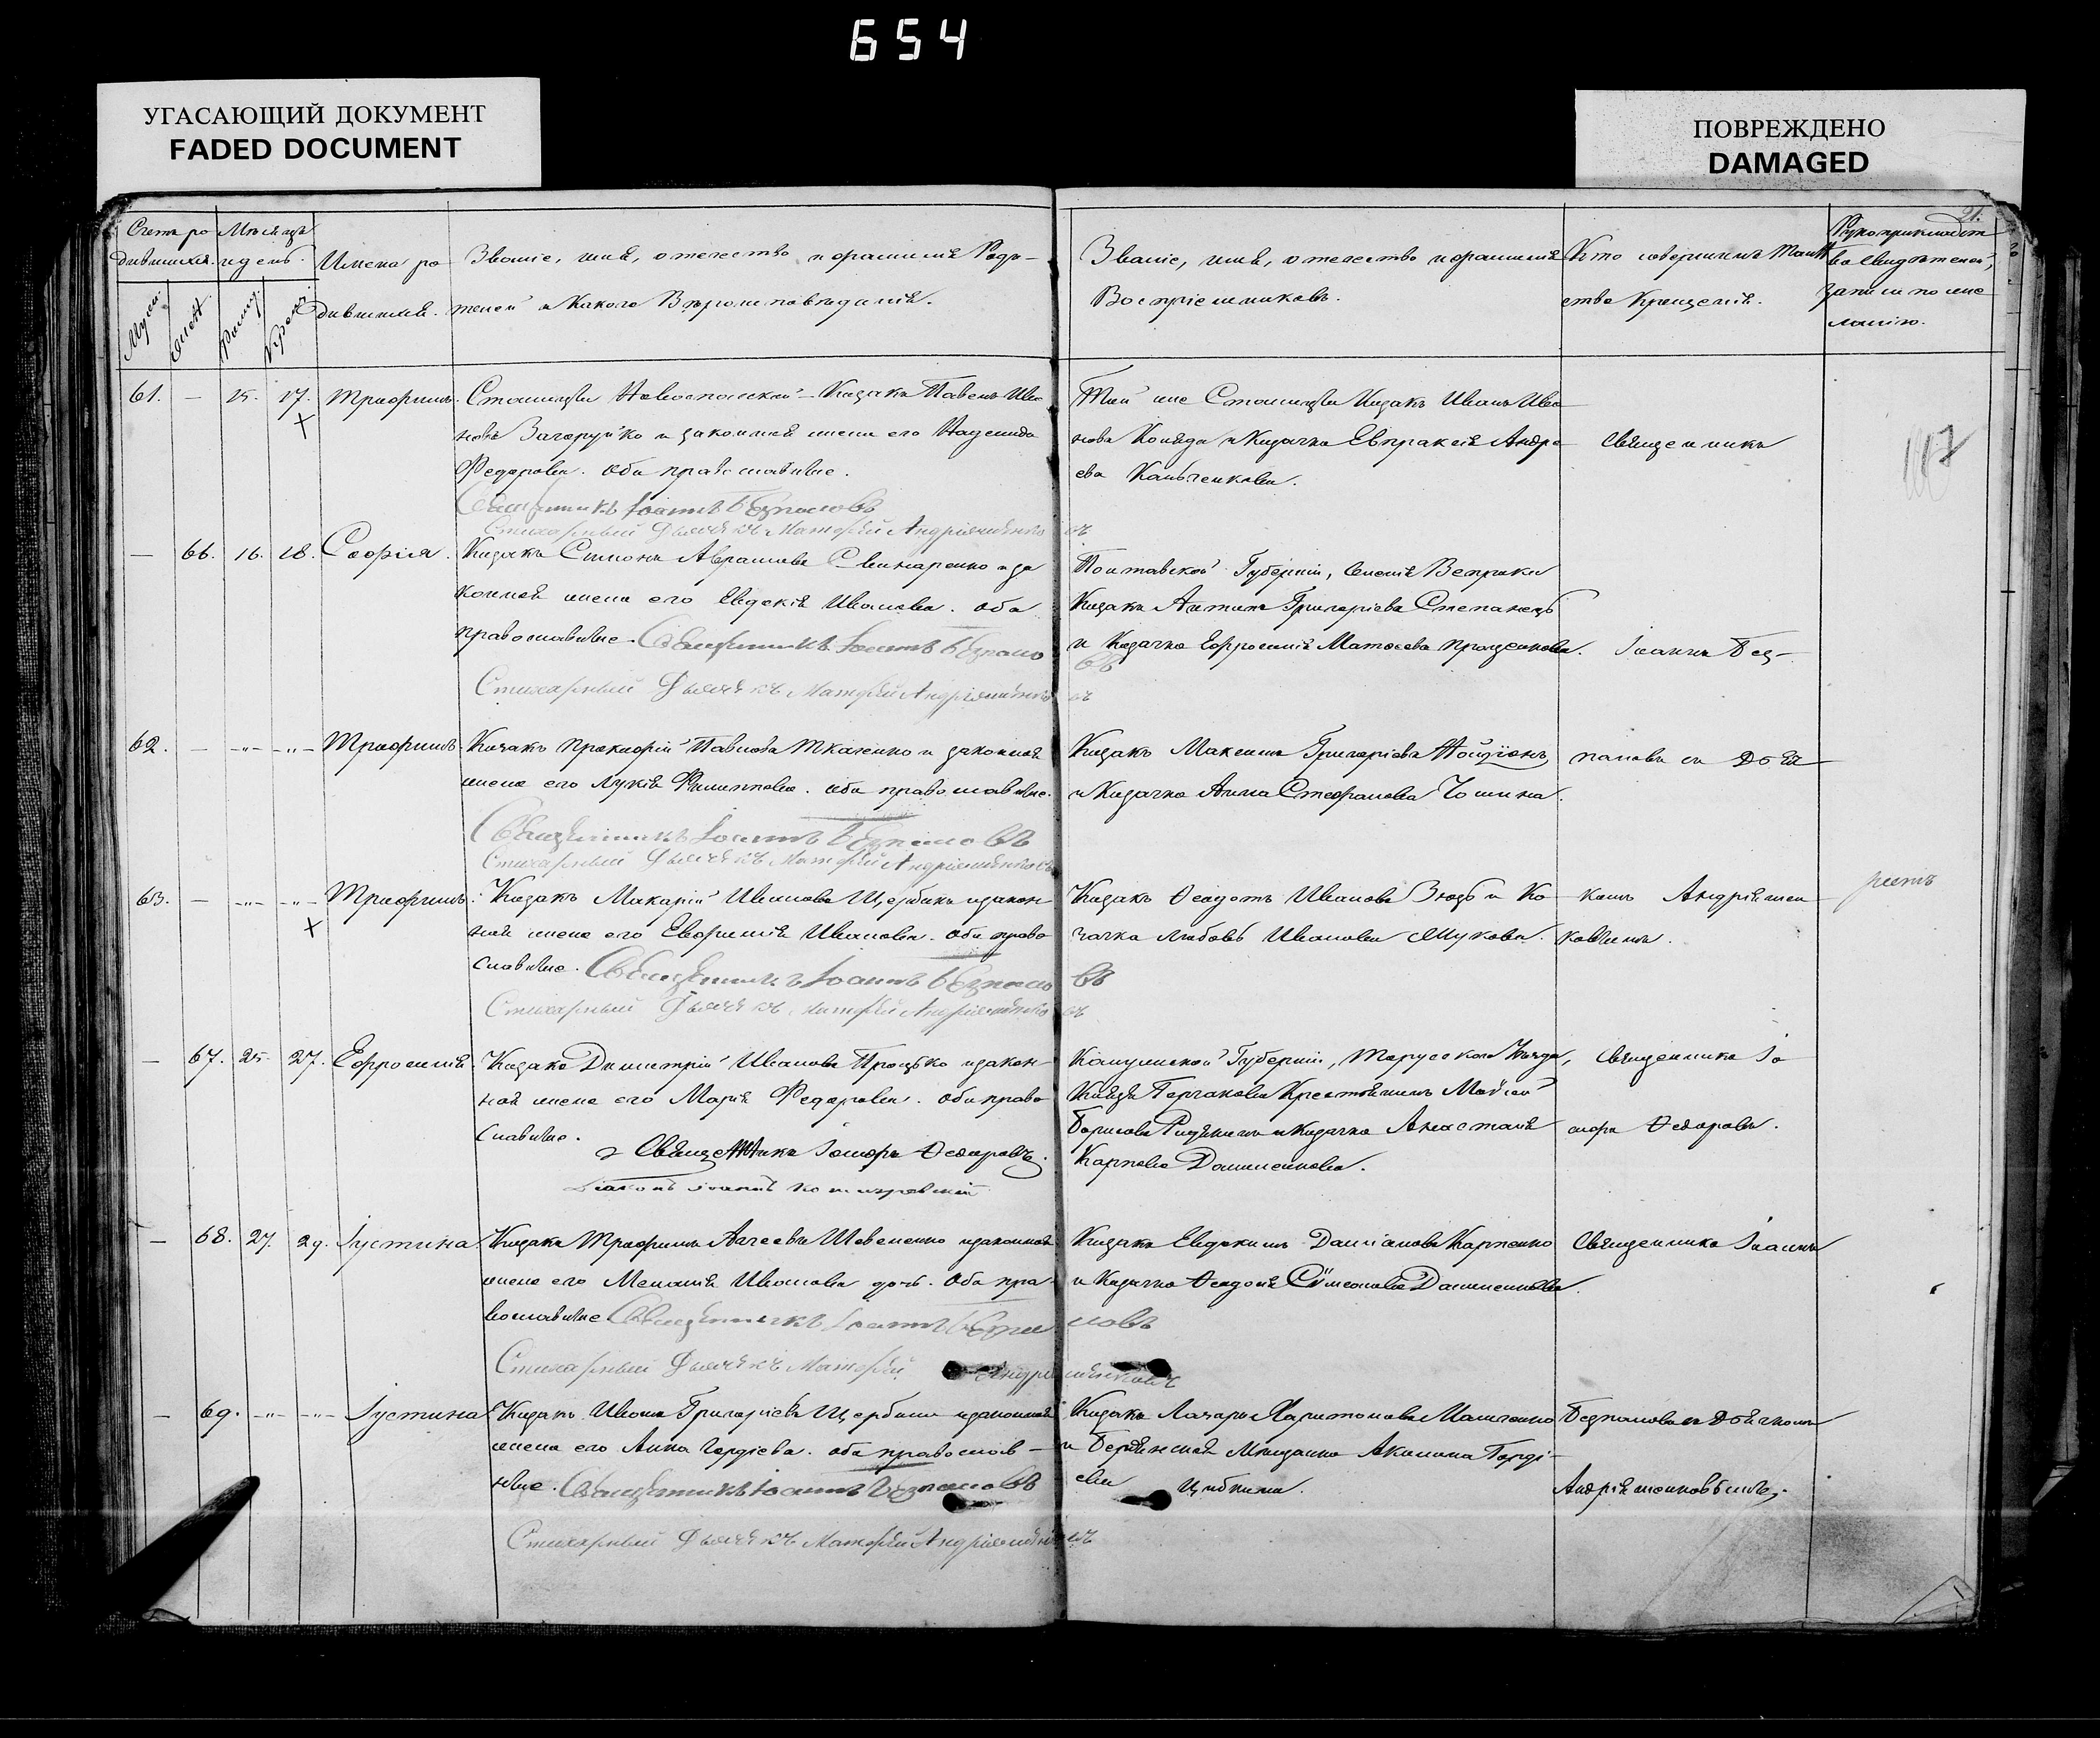 654
УГАСАЮЩИЙ ДОКУМЕНТ
FADED DOCUMENT
ПОВРЕЖДЕНО
DAMAGED
21.
Счетъ ро
дившихся.
Мѣсяцъ
и день.
Муж.
Женск.
Рожд.
Крещ.
Имена ро
дившихся.
Званіе, имя, отчество и фамилія Роди-
телей и Какого Вѣроисповѣданія.
Званіе, имя, отчество и фамилія
Воспріемниковъ.
Кто совершилъ Таин
ство Крещенія.
Рукоприкладст
во свидѣтелей,
записи по же
ланію.
61. — 25. 27. Трофимъ. Станицы Новоспасской Казакъ Павелъ Ива
новъ Загоруйко и законная жена его Надежда
Федорова. Оба православные.
Священникъ Іоаннъ Безпаловъ
Стихарный Дьячекъ Матфей
Той же Станицы Казакъ Иванъ Ива
новъ Коняда и Казачка Евпраксія Андре
ева
Священникъ
— 66. 16. 28. Софія. Казакъ Симонъ Аврамовъ Свинаренко и за
конная жена его Евдокія Иванова. Оба
православные. Священникъ Іоаннъ Безпало
въ
Стихарный Дьячекъ Матфей
Полтавской Губерніи, Селенія Веприка
Казакъ Антипъ Григорьевъ Степанецъ
и Казачка Ефросинія Матѳеева Прощенкова.
Іоаннъ Без-
62. — -"- -"- Трофимъ Казакъ Прокофій Павловъ Ткаченко и законная
жена его Лукія Филиппова. Оба православные.
Священникъ Іоаннъ Безпаловъ
Стихарный Дьячекъ Матфей
Казакъ Максимъ Григорьевъ
и Казачка Анна Стефанова
паловъ съ Дья
63. — -"- -"- Трофимъ. Казакъ Макарій Ивановъ Щербакъ и закон-
ная жена его Евфимія Иванова. Оба право
славные. Священникъ Іоаннъ Безпало
въ
Стихарный Дьячекъ Матфей
Казакъ Ѳеодотъ Ивановъ Зюзь и Ко
зачка Любовь Иванова Жукова.
комъ Андріяшен
ковымъ.
— 67. 25. 27. Ефросинія. Казакъ Димитрій Ивановъ Процько и закон-
ная жена его Марія Федорова. Оба право
славные.
Священникъ Іосифъ Ѳедоровъ.
Діаконъ Іоаннъ
Калужской Губерніи, Тарусскаго Уѣзда,
Князя Горчакова Крестьянинъ Моисей
Борисовъ и Казачка Анастасія
Карпова Дашменкова.
Священникъ Іо
сифъ Ѳедоровъ.
— 68. 27. 29. Іустина. Казакъ Трофимъ Авгеевъ Шевченко и законная
жена его Меланія Иванова дочь. Оба пра-
вославные Священникъ Іоаннъ Безпа
ловъ
Стихарный Дьячекъ Матфей
Казакъ Евдокимъ Даміановъ Карпенко
и Казачка Ѳеодосія Симеонова Дашменкова.
Священникъ Іоаннъ
— 69. -"- -"- Іустина Казакъ Иванъ Григорьевъ Щербина и законная
жена его Анна Гордіева. Оба православ-
ные. Священникъ Іоаннъ Безпаловъ
Стихарный Дьячекъ Матфей
Казакъ Лазарь Харитоновъ
и Бердянская Мѣщанка Акилина Горді-
ева Цибкина.
Безпаловъ съ Дьячкомъ
Андріяшенковымъ.